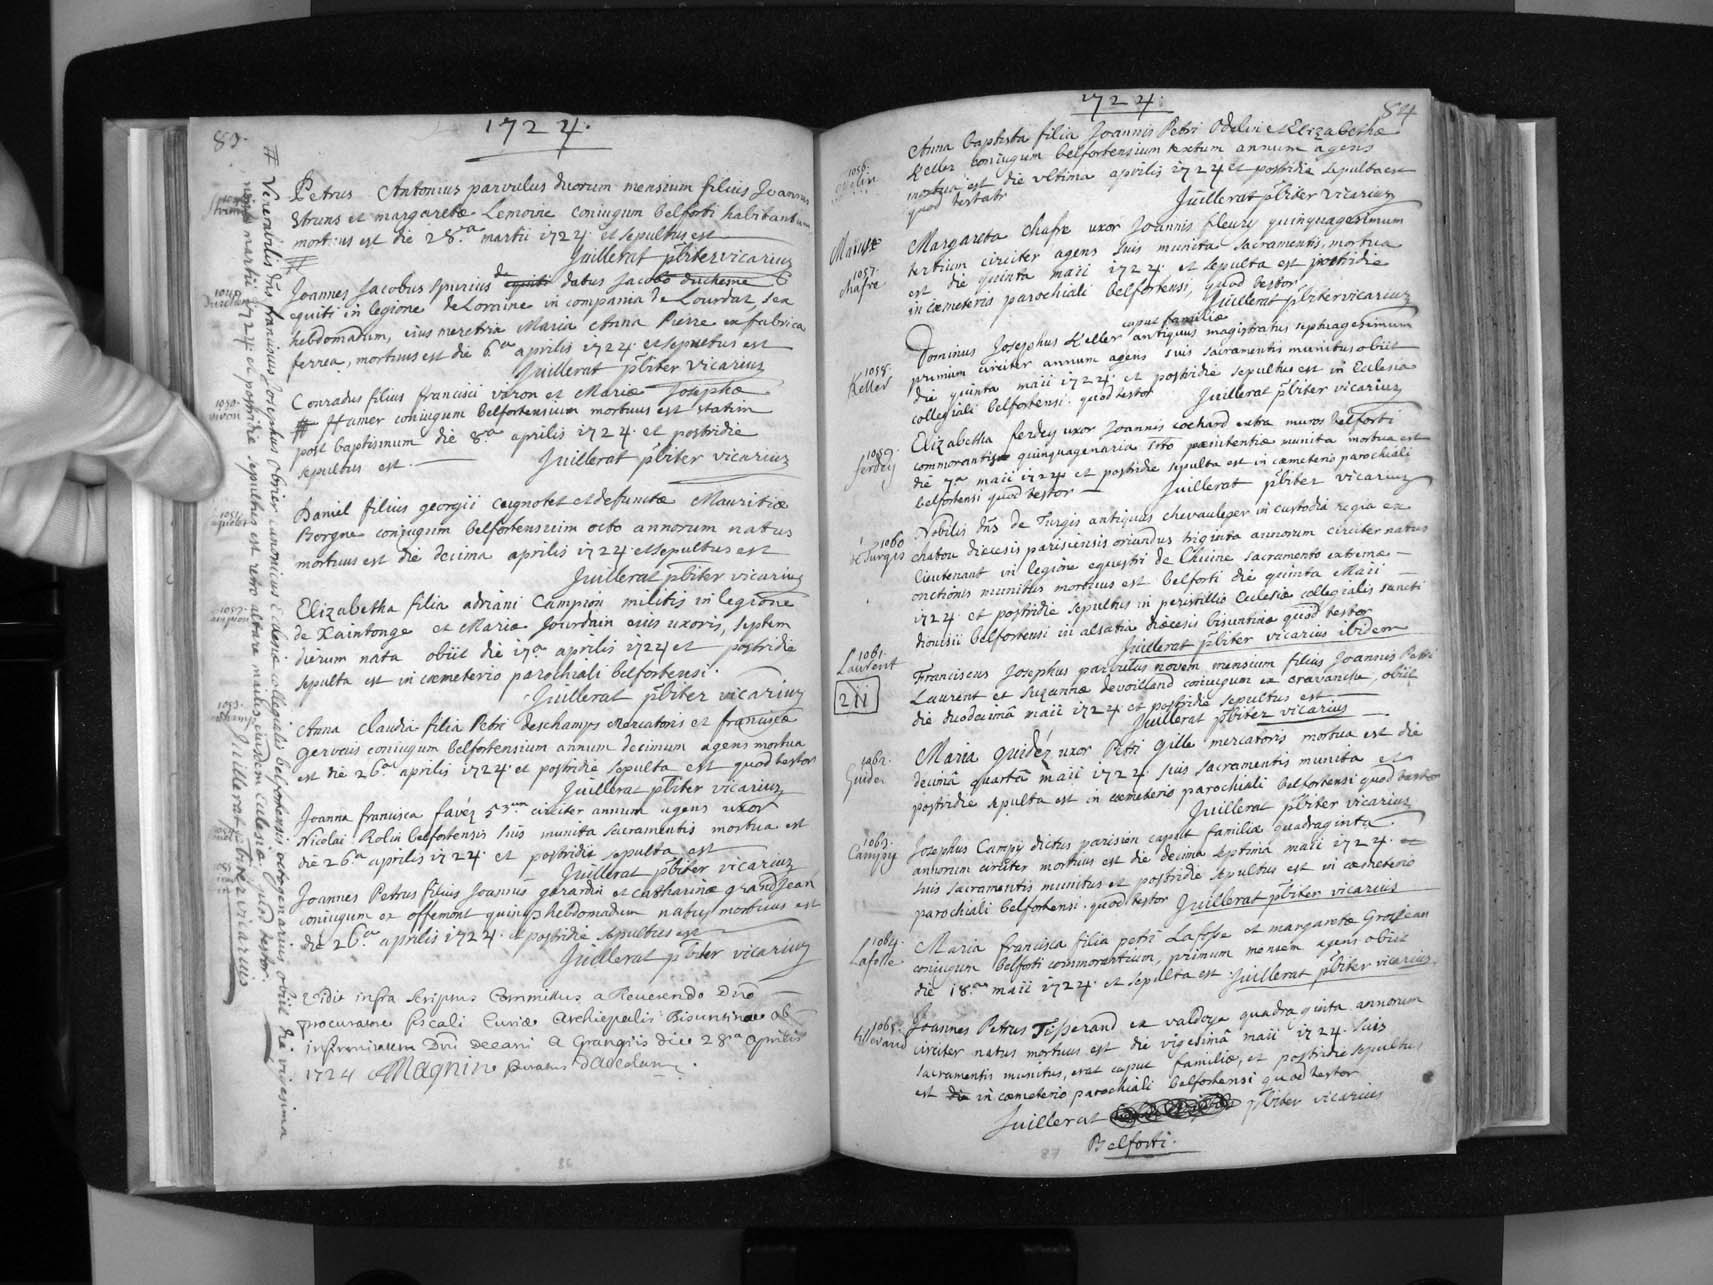 83.
1724.
Petrus Antonius parvulus duorum mensium filius Joannis
Struns et margaretæ Lemoine coniugum belforti habitantium
mortuus est die 28.a martii 1724. et sepultus est
Juillerat pbiter vicarius
Joannes Jacobus spurius datus Jacobo ducheme
equiti in legione de Loraine in compania de Lourdat, sex
hebdomadum, eius meretrix Maria Anna Pierre ex fabrica
ferrea, mortuus est die 6.a aprilis 1724. et sepultus est
Juillerat pbiter vicarius
1050.
viron
Conradus filius francisci viron et Mariæ Josephæ
Hamer coniugum belfortensium mortuus est statim
post baptismum die 8.a aprilis 1724. et postridie
sepultus est.
Juillerat pbiter vicarius
1051.
Daniel filius georgii cuignotet et defunctæ Mauritiæ
Borgne coniugum belfortensium octo annorum natus
mortuus est die decima aprilis 1724 et sepultus est
Juillerat pbiter vicarius
1052.
Elizabetha filia adriani Campion militis in legione
de Xaintonge et Mariæ Jourdain eius uxoris, septem
dierum nata obiit die 17.a aprilis 1724 et postridie
sepulta est in cœmeterio parochiali belfortensi.
Juillerat pbiter vicarius
1053.
Anna Claudia filia Petri deschamps mercatoris et franciscæ
gervais coniugum belfortensium annum decimum agens mortua
est die 26.a aprilis 1724. et postridie sepulta est quod testor
Juillerat pbiter vicarius
Joanna francisca favéz 53.um circiter annum agens uxor
Nicolai Rolin belfortensis suis munita sacramentis mortua est
die 26.a aprilis 1724. et postridie sepulta est
Juillerat pbiter vicarius
Joannes Petrus filius Joannis gerardin et catharinæ grandJean
coniugum ex offemont quinq hebdomadum natus mortuus est
die 26.a aprilis 1724. et postridie sepultus est
Juillerat pbiter vicarius
Vidit infra scriptus Commissus a Reverendo Dno
procuratore fiscali Curiæ Archiepalis Bisuntinæ ob
infirmitatem Dni decani a Grangiis die 28.a aprilis
1724 Magnin
Venerabilis dns franciscus Josephus obrier canonicus Ecclesiæ collegialis belfortensis octogenarius obiit die vigesima
nona martii 1724. et postridie sepultus est retro altare maius eiusdem Ecclesiæ quod testor.
Juillerat pbiter vicarius
86
1724.
84
1056.
odelin
Anna baptista filia Joannis Petri Odelin et Elizabethæ
Keller coniugum belfortensium sextum annum agens
mortua est die ultima aprilis 1724 et postridie sepulta est
quod testatr
Juillerat pbiter vicarius
Maiusæ
1057.
chafre
Margareta chafre uxor Joannis fleury quinquagesimum
tertium circiter agens suis munita sacramentis, mortua
est die quinta maii 1724. et sepulta est postridie
in cœmeterio parochiali belfortensi, quod testor.
Juillerat pbiter vicarius
1058.
Keller
caput familiæ
Dominus Josephus Keller antiquus magistratus septuagesimum
primum circiter annum agens suis sacramentis munitus obiit
die quinta maii 1724. et postridie sepultus est in Ecclesia
collegiali belfortensi. quod testor
Juillerat pbiter vicarius
1059.
ferdey
Elizabetha ferdey uxor Joannis cochard extra muros belforti
commorantis quinquagenaria pœnitentiæ munita mortua est
die 7.a maii 1724 et postridie sepulta est in cœmeterio parochiali
belfortensi quod testor
Juillerat pbiter vicarius
1060
de Turgis
Nobilis dns de Turgis antiquus chevauleger in custodia regia ex
chatou diœcesis parisiensis oriundus triginta annorum circiter natus
lieutenant in legione equestri de Chuine sacramento extremæ
onctionis munitus mortuus est belforti die quinta Maii
1724. et postridie sepultus in peristillio Ecclesiæ collegialis sancti
dionisii belfortensi in alsatia diœcesis bisuntinæ quod testor
Juillerat pbiter vicarius ibidem
1061.
Laurent
2ii
Franciscus Josephus parvulus novem mensium filius Joannis Petri
Laurent et Suzannæ devoilland coniugum ex cravanche, obiit
die duodecimâ maii 1724 et postridie sepultus est
Juillerat pbiter vicarius
1062.
Guidez
Maria Guidéz uxor Petri gille mercatoris mortua est die
decimâ quartâ maii 1724 suis sacramentis munita et
postridie sepulta est in cœmeterio parochiali belfortensi quod testor
Juillerat pbiter vicarius
1063.
Campy
Josephus Campy dictus parisien caput familiæ quadraginta
annorum circiter mortuus est die decima septima maii 1724.
suis sacramentis munitus et postridie sepultus est in cœmeterio
parochiali belfortensi. quod testor Juillerat pbiter vicarius
1064.
Lafosse
Maria francisca filia petri Lafosse et margaretæ GrosJean
coniugum belforti commorantium, primum mensem agens obiit
die 18.a maii 1724. et sepulta est. Juillerat pbiter vicarius.
1065.
tisserand
Joannes Petrus Tisserand ex valdoye quadraginta annorum
circiter natus mortuus est die vigesimâ maii 1724. suis
sacramentis munitus, erat caput familiæ, et postridie sepultus
est die in cœmeterio parochiali belfortensi quod testor
Juillerat pbiter vicarius
Belforti.
87